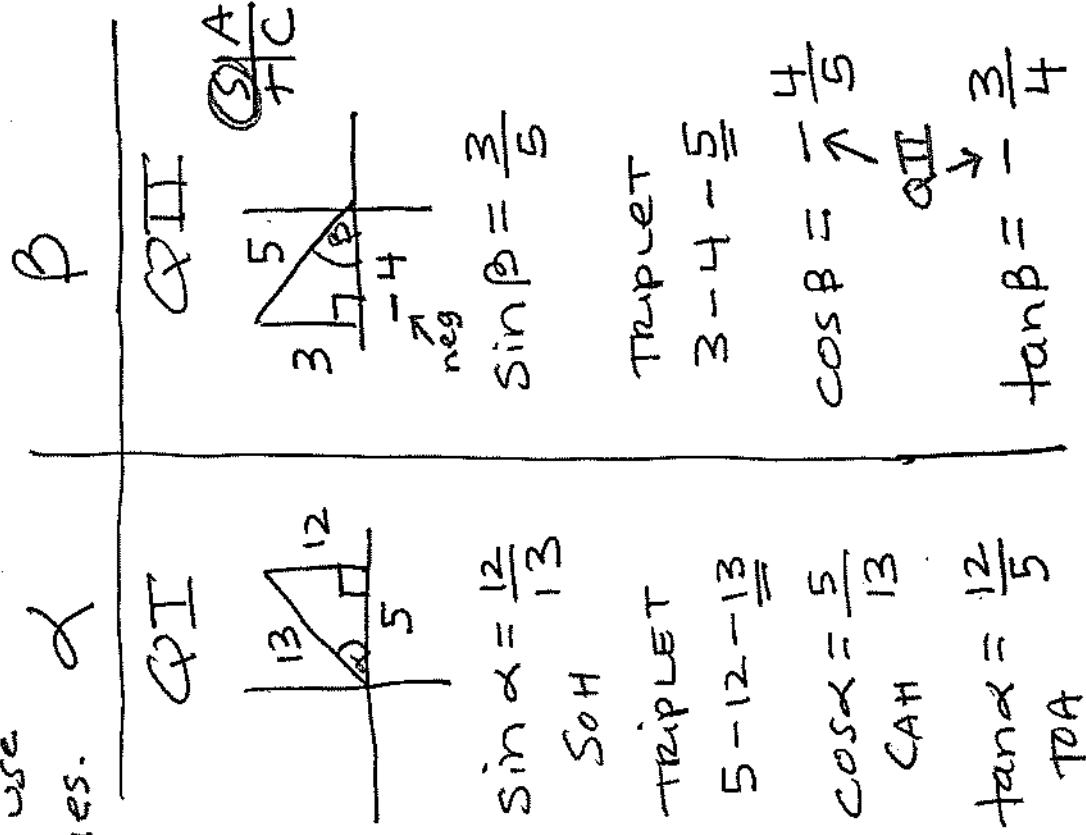 use
es.
α
QI
13
12
α
5
sin α = 12/13
SOH
TRIPLET
5-12-13
cosα = 5/13
CAH
tanα = 12/5
TOA
β
QII
S A
T C
5
3
β
-4
neg
sin β = 3/5
TRIPLET
3-4-5
cos β = -4/5
QII
tan β = -3/4